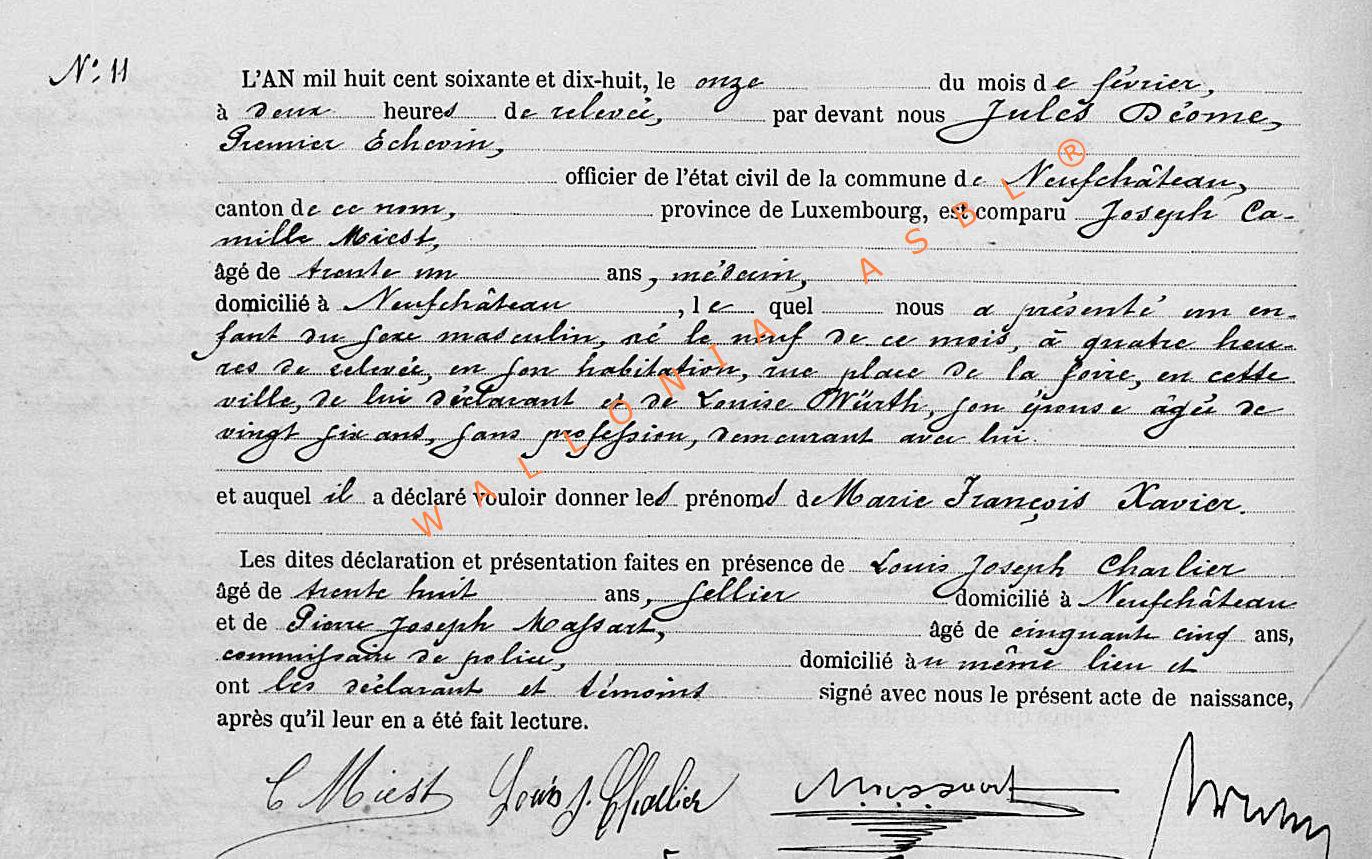 N° 11
L'AN mil huit cent soixante et dix-huit, le onze du mois de février,
à deux heures de relevée, par devant nous Jules Déome,
Premier Echevin,
officier de l'état civil de la commune de Neufchâteau,
canton de ce nom, province de Luxembourg, est comparu Joseph Ca-
mille Miest,
âgé de trente un ans, médecin,
domicilié à Neufchâteau, lequel nous a présenté un en-
fant du sexe masculin, né le neuf de ce mois, à quatre heu-
res de relevée, en son habitation, rue place de la foire, en cette
ville, de lui déclarant et de Louise Würth, son épouse âgée de
vingt six ans, sans profession, demeurant avec lui.
et auquel il a déclaré vouloir donner les prénoms de Marie François Xavier.
Les dites déclaration et présentation faites en présence de Louis Joseph Charlier
âgé de trente huit ans, sellier domicilié à Neufchâteau
et de Pierre Joseph Massart, âgé de cinquante cinq ans,
commissaire de police, domicilié au même lieu et
ont les déclarant et témoins signé avec nous le présent acte de naissance,
après qu'il leur en a été fait lecture.
C Miest Louis J. Charlier Massart
WALLONIA ASBL ®